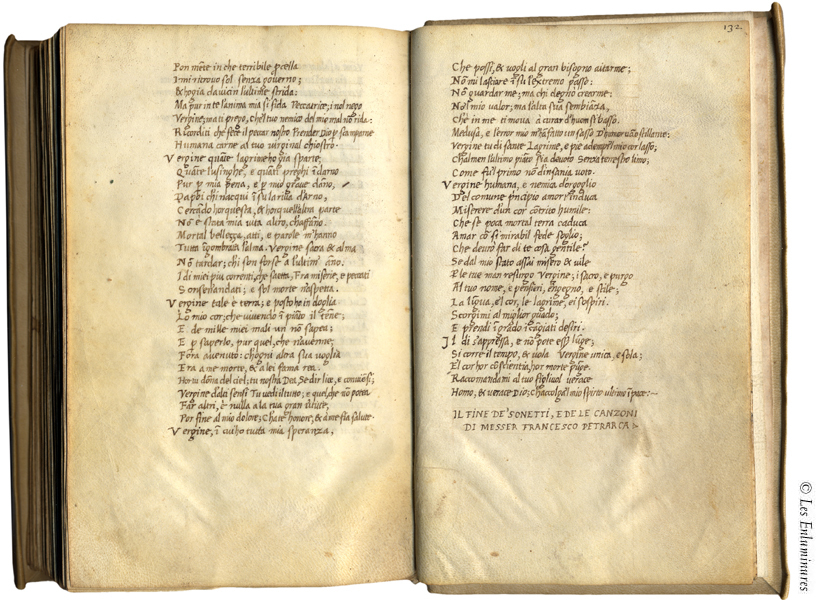 Pon mẽte in che terribile pcella
I mi ritrovo sol senza governo;
& ho gia da vicin l'ultime strida:
Ma pur in te l'anima mia si fida Peccatrice; i nol nego
Vergine; ma ti prego, che'l tuo nemico del mio mal nõ rida:
Ricorditi che fece il peccar nostro Prender Dio p scamparne
Humana carne al tuo virginal chiostro.
Vergine quãte lagrime ho gia sparte;
Quãte lusinghe, e quãti preghi ĩdarno
Pur p mia pena, e p mio grave dãno,
Da poi ch'i nacqui ĩ su la riva d'Arno,
Cercãdo hor questa, & hor quell'altra parte
Nõ è stata mia vita altro, ch'affãno.
Mortal bellezza, atti, e parole m'hanno
Tutta ĩgombrata l'alma. Vergine sacra & alma
Nõ tardar; ch'i son forse a l'ultim' ãno.
I di miei piu correnti, che saetta, Fra miserie, e peccati
Son sen'andati; e sol morte n'aspetta.
Vergine tale è terra; e posto ha in doglia
Lo mio cor; che vivendo ĩ piãto il tẽne;
E de mille miei mali un nõ sapea;
E p saperlo, pur quel, che n'avẽne,
Fora avenuto: ch'ogni altra sua voglia
Era a me morte, & a lei fama rea.
Hor tu dõna del ciel; tu nostra Dea, Se dir lice, e conviẽsi;
Vergine d'alti sensi Tu vedi il tutto; e quel, che nõ potea
Far altri, è nulla a la tua gran vertute,
Por fine al mio dolore; Ch'a te honore, & a me sia salute.
Vergine, ĩ cui ho tutta mia speranza,
132
Che possi, & vogli al gran bisogno aitarme;
Nõ mi lasciare ĩ su l'extremo passo:
Nõ guardar me; ma chi degnò crearme:
Nol mio valor; ma l'alta sua sembiãza,
Che in me ti mova à curar d'huom sì basso.
Medusa, e l'error mio m'hã fatto un sasso D'humor vãno stillante:
Vergine tu di sante Lagrime, e pie adempi'l mio cor lasso;
Ch'almen l'ultimo piãto sia devoto Senza terrestre limo;
Come fu'l primo nõ d'insania voto.
Vergine humana, e nemica d'orgoglio
Del comune pncipio amor t'induca
Miserere d'un cor cõtrito humile:
Che se poca mortal terra caduca
Amar cõ sì mirabil fede soglio;
Che devrò far di te cosa gẽtile?
Se dal mio stato assai misero & vile
P le tue man resurgo Vergine; i sacro, e purgo
Al tuo nome, e pẽsieri, engegno, e stile;
La lĩgua, e'l cor, le lagrime, ei sospiri.
Scorgimi al miglior guado;
E prendi ĩ grado ĩ cãgiati desiri.
Il dì s'appressa, e nõ pote esser lũge;
Sì corre il tempo, & vola Vergine unica, e sola;
E'l cor hor cõscientia, hor morte pũge.
Raccomandami al tuo figliuol verace
Homo, & verace Dio; Ch'accolga'l mio spirto ultimo ĩ pace:~
IL FINE DE' SONETTI, E DE LE CANZONI
DI MESSER FRANCESCO PETRARCA
© Les Enluminures